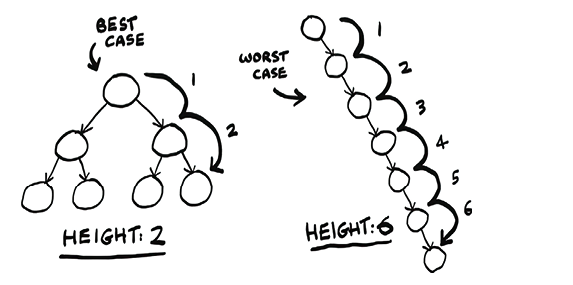 BEST
CASE
1
2
HEIGHT: 2
WORST
CASE
1
2
3
4
5
6
HEIGHT: 6